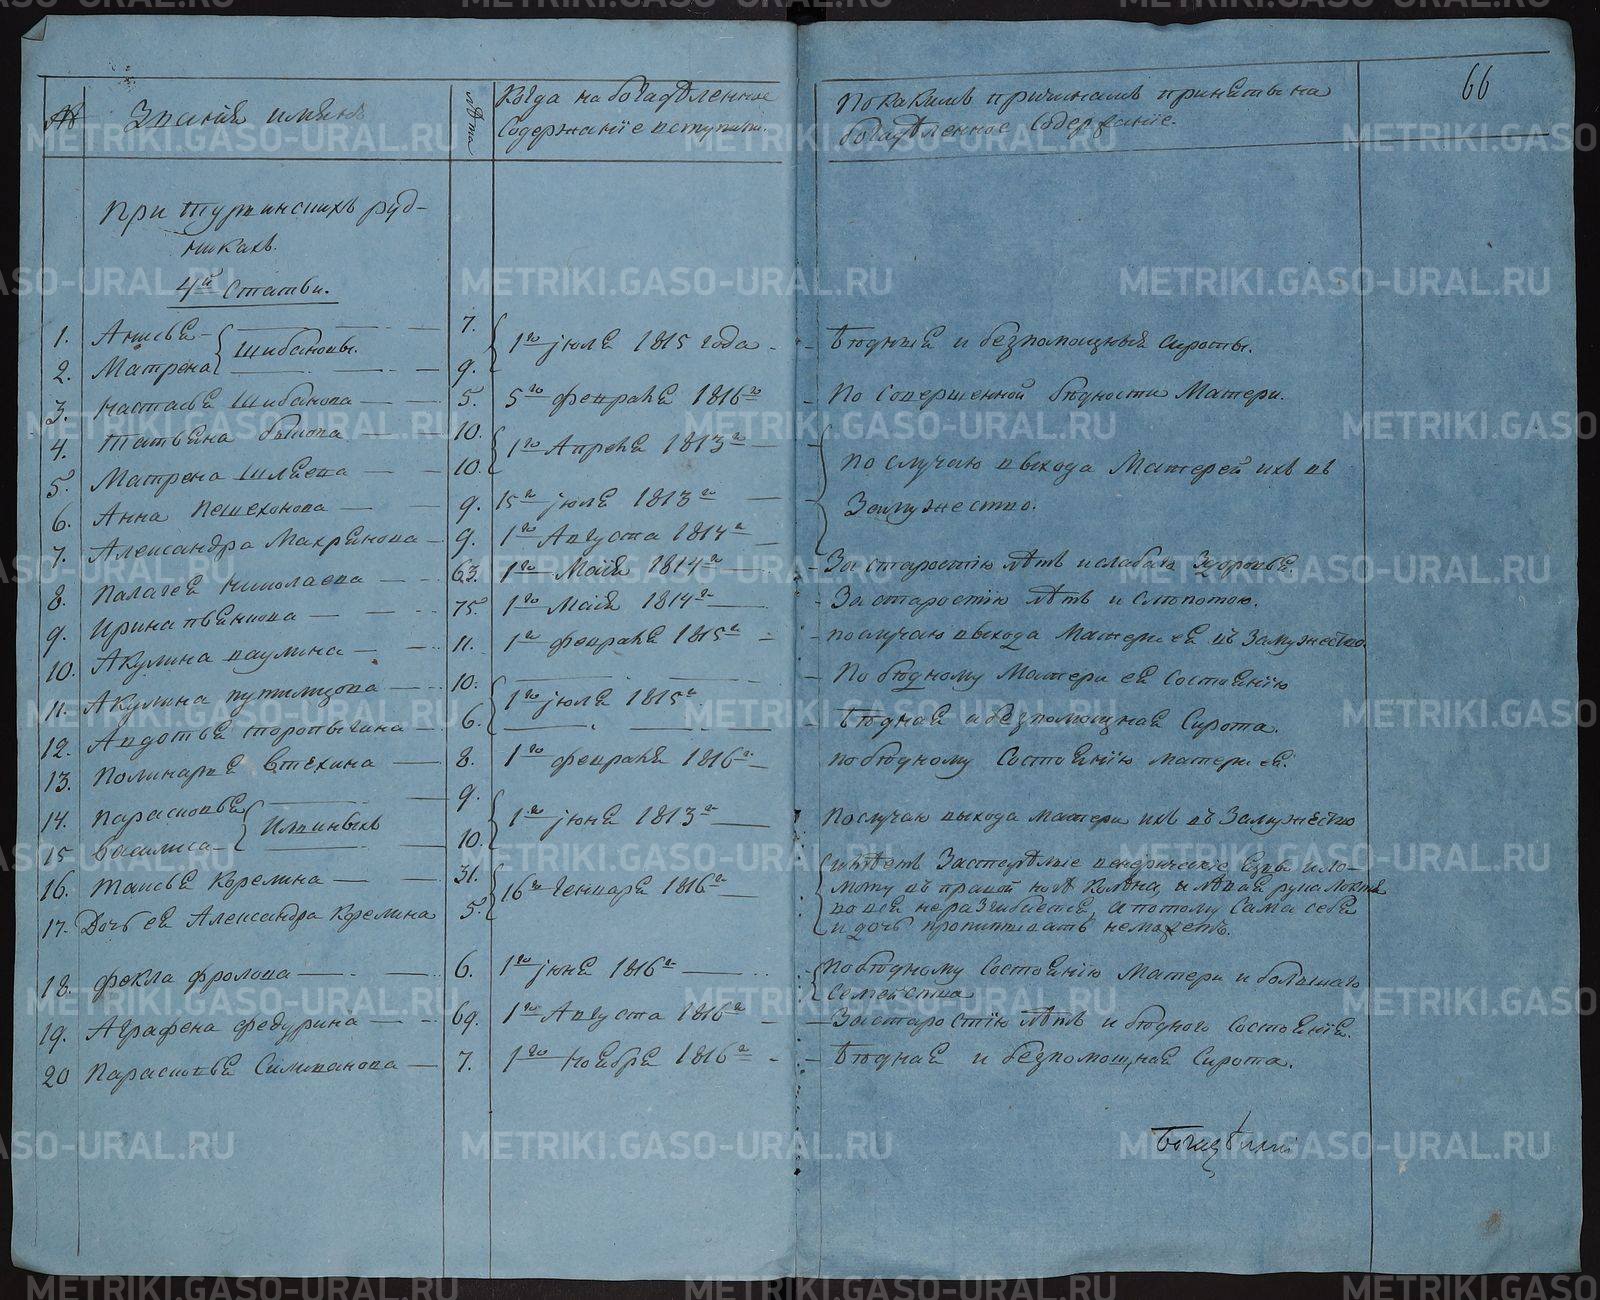 66
№ Званiя имянъ лѣта Когда на богадѣленное По какимъ причинамъ приняты на
содержанiе вступили. богадѣленное содержанiе.
При Турьинскихъ руд-
никахъ.
4й Статьи.
1. Анисья 7.
Шибановы. 1го июля 1815 года Бѣдныя и безпомощныя сироты.
2. Матрена 9.
3. Настасья Шибанова 5. 5го февраля 1816го По совершенной бѣдности Матери.
4. Татьяна 10. 1го Апреля 1813го
5. Матрена Шляева 10. По случаю выхода Матерей ихъ въ
6. Анна Пешехонова 9. 15го июля 1813го Замужество.
7. Александра Махрянова 9. 1го Августа 1814го
8. Палагея Николаева 63. 1го Маiя 1814го За старостiю лѣтъ и слабаго здоровья.
9. Ирина 75. 1го Маiя 1814го За старостiю лѣтъ и слѣпотою.
10. Акулина Ваулина 11. 1го февраля 1815го по случаю выхода Матери ея въ Замужество.
11. Акулина Путимцова 10. По бѣдному Матери ея состоянiю
1го июля 1815го
12. Авдотья Торопыгина 6. Бѣдная и безпомощная Сирота.
13. Полинарья Стехина 8. 1го февраля 1816го по бѣдному Состоянiю матери ея.
14. Парасковья 9.
Илтиныхъ 1го июня 1813го По случаю выхода матери ихъ въ Замужество
15 Василиса 10.
16. Таисья Корелина 31. имѣетъ Застарѣлые венерическiе Язвы и ло-
16го Генваря 1816го моту въ правой ногѣ колѣна, и лѣвая рука локтя
17. Дочь ея Александра Корелина 5. вовся неразгибается, а потому Сама себя
и дочь пропитывать неможетъ.
18. Фекла Фролова 6. 1го июня 1816го По бѣдному Состоянiю Матери и большаго
семейства
19. Аграфена Федурина 69. 1го Августа 1816го За старостiю лѣтъ и бѣдного состоянiя.
20 Парасковья Симпанова 7. 1го Ноября 1816го Бѣдная и безпомощная Сирота.
METRIKI.GASO-URAL.RU